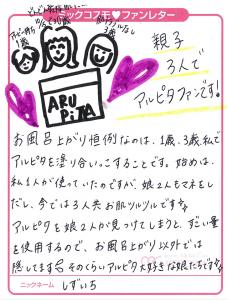 ニックコスモ♥ファンレター
親子
3人で
アルピタファンです!
ARU
PITA
お風呂上がり恒例なのは、1歳、3歳、私で
アルピタを塗り合いっこすることです。始めは、
私1人が使っていたのですが、娘2人もマネをし
だし、今では3人共お肌ツルツルです。
アルピタを娘2人が見つけてしまうと、すごい量
を使用するので、お風呂上がり以外では
隠してます そのくらいアルピタ大好きな娘たちです。
ニックネーム
しずいち